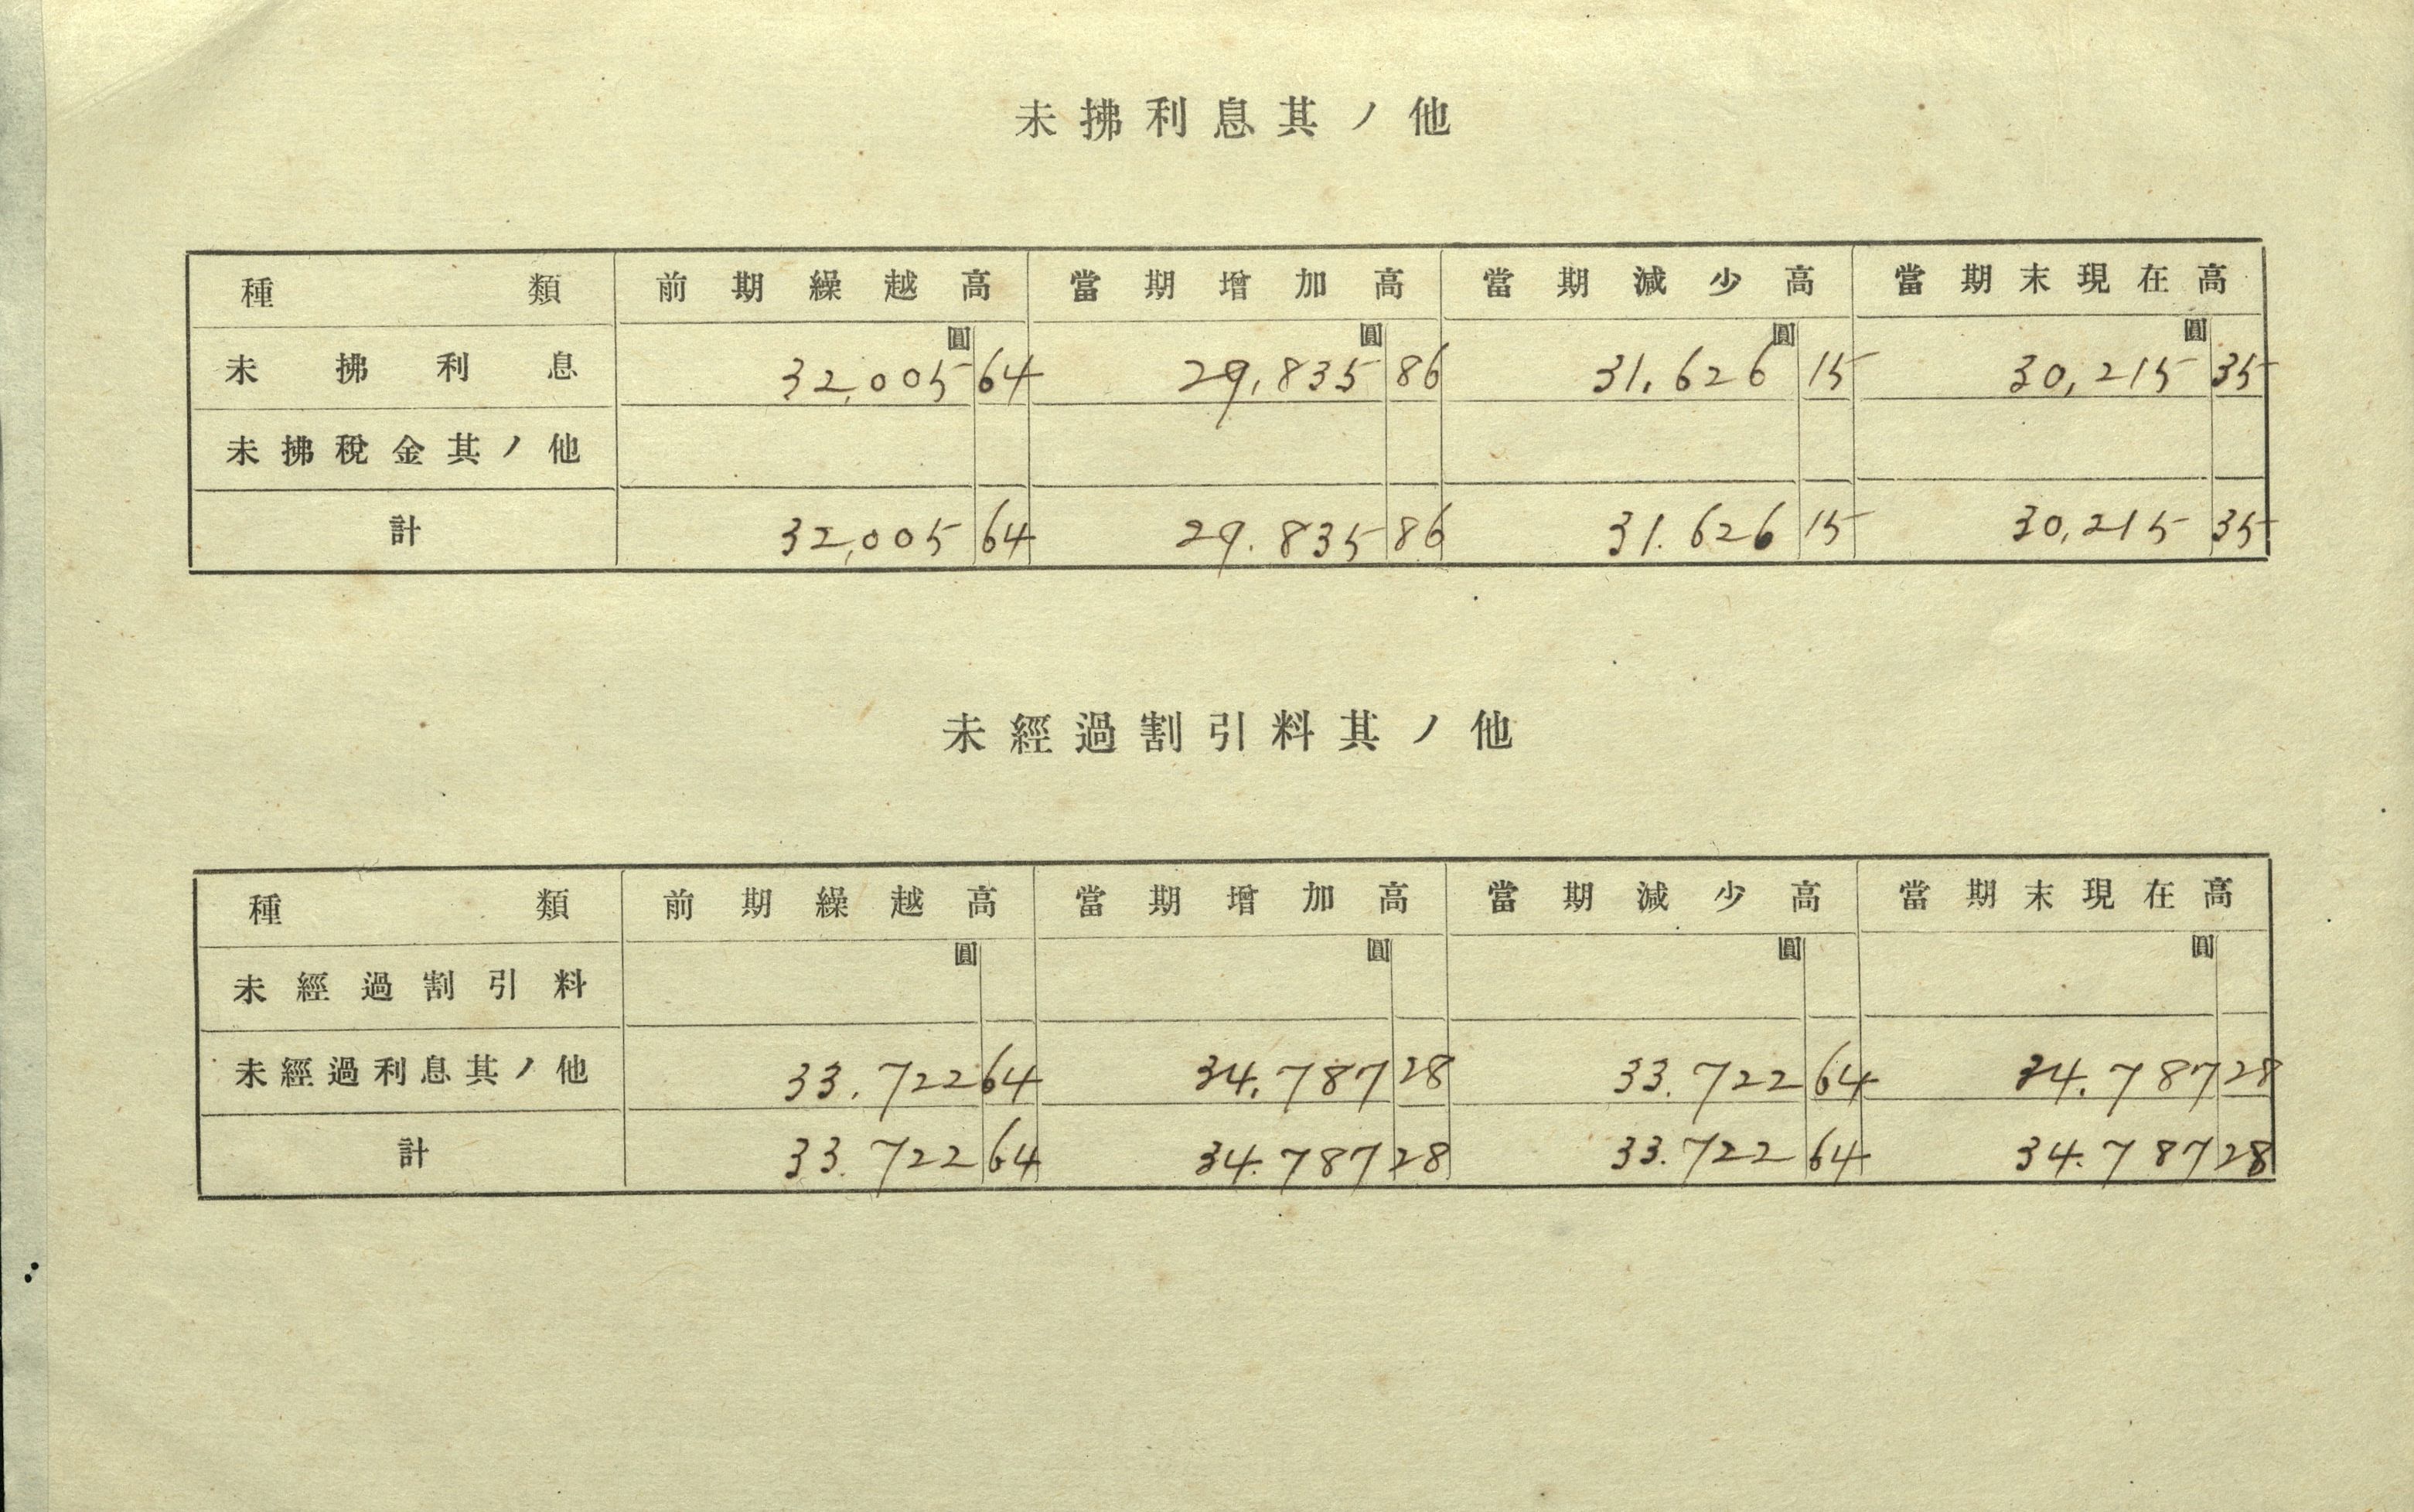 未拂利息其ノ他
種類 前期繰越高 當期增加高 當期減少高 當期末現在高
圓 圓 圓 圓
未拂利息 32,005 64 29,835 86 31.626 15 30,215 35
未拂稅金其ノ他
計 32,005 64 29.835 86 31.626 15 30,215 35
未經過割引料其ノ他
種類 前期繰越高 當期增加高 當期減少高 當期末現在高
圓 圓 圓 圓
未經過割引料
未經過利息其ノ他 33.722 64 34.787 28 33.722 64 34.787 28
計 33.722 64 34.787 28 33.722 64 34.787 28